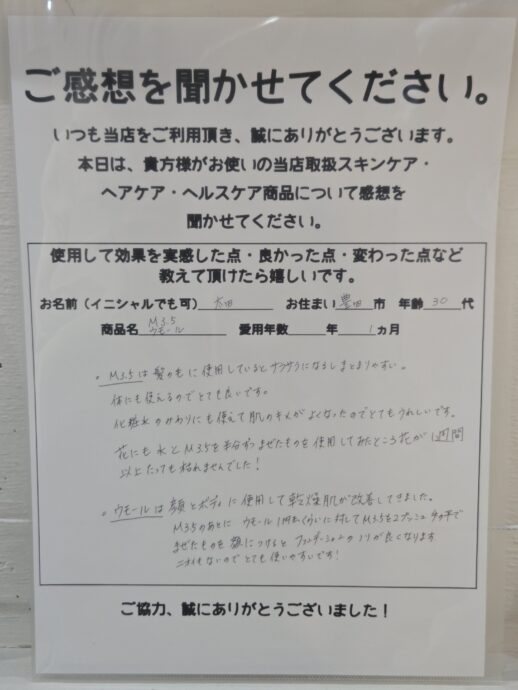 ご感想を聞かせてください。
いつも当店をご利用頂き、誠にありがとうございます。
本日は、貴方様がお使いの当店取扱スキンケア・
ヘアケア・ヘルスケア商品について感想を
聞かせてください。
使用して効果を実感した点・良かった点・変わった点など
教えて頂けたら嬉しいです。
お名前(イニシャルでも可) 太田 お住まい 豊田 市 年齢 30 代
商品名 M3.5 ウモール 愛用年数 年 1 ヵ月
・M3.5は髪の毛に使用しているとサラサラになるしまとまりやすい。
体にも使えるのでとても良いです。
化粧水のかわりにも使えて肌のキメがよくなったのでとてもうれしいです。
花にも水とM3.5を半分ずつまぜたものを使用してみたところ花が1週間
以上たっても枯れませんでした!
・ウモールは顔とボディに使用して乾燥肌が改善してきました。
M3.5のあとにウモール1円玉くらいに対してM3.5を2プッシュ手の平で
まぜたものを顔につけるとファンデーションのノリが良くなります
ニオイもないのでとても使いやすいです!
ご協力、誠にありがとうございました!